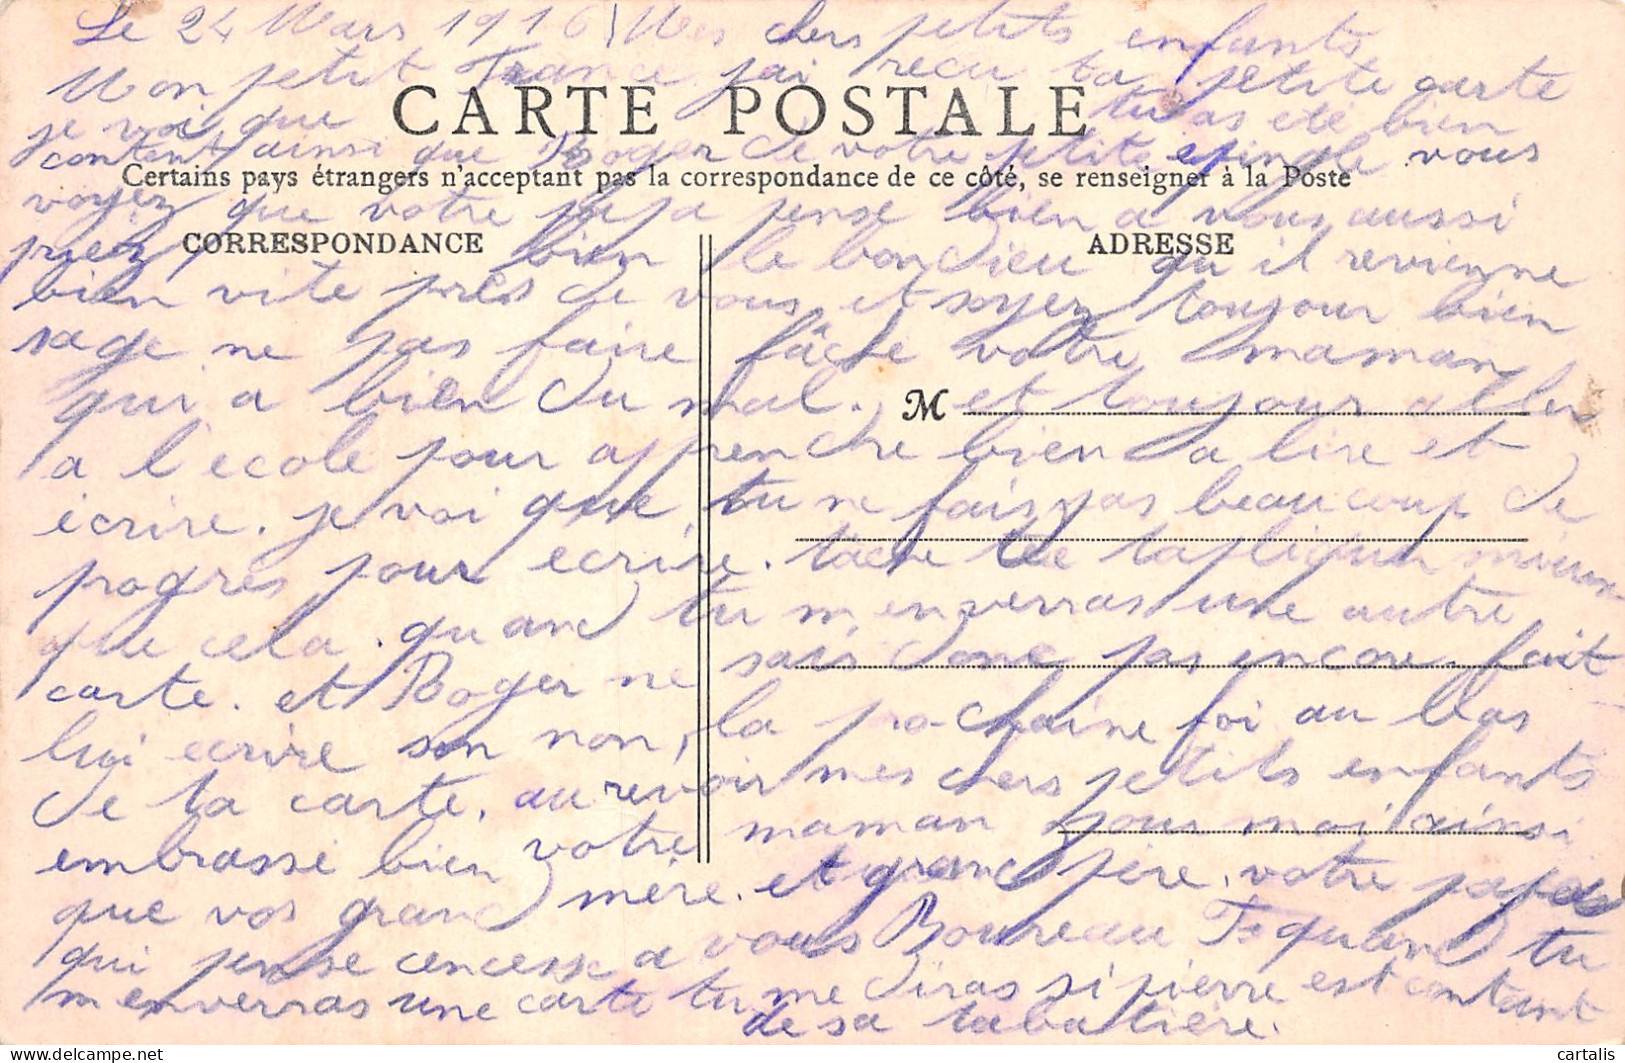 Le 24 Mars 1916 Mes chers petits enfants
Mon petit France jai recu ta petite carte
CARTE POSTALE
je voi que tu as été bien
content ainsi que Roger de votre petite epingle vous
Certains pays étrangers n'acceptant pas la correspondance de ce côté, se renseigner à la Poste
voyez que votre papa pense bien a vous aussi
CORRESPONDANCE
ADRESSE
priez bien le bon Dieu qu il revienne
bien vite près de vous et soyez toujour bien
sage ne pas faire fâche votre maman
qui a bien du mal. et toujour aller
M
a l'ecole pour apprenche bien a lire et
écrire. je voi que tu ne fais pas beaucoup de
progrès pour ecrire. tâche de tapliquer mieux
que cela. quand tu m enverras une autre
carte. et Roger ne sais donc pas encore. fait
lui ecrire son non, la prochaine foi au bas
de ta carte. au révoir mes chers petits enfants
embrasse bien votre maman pour moi ainsi
que vos grand mère. et grand père. votre papa
qui pense cencesse a vous Boureau T quand tu
m enverras une carte tu me diras si pierre est contant
de sa tabatière.
cartalis